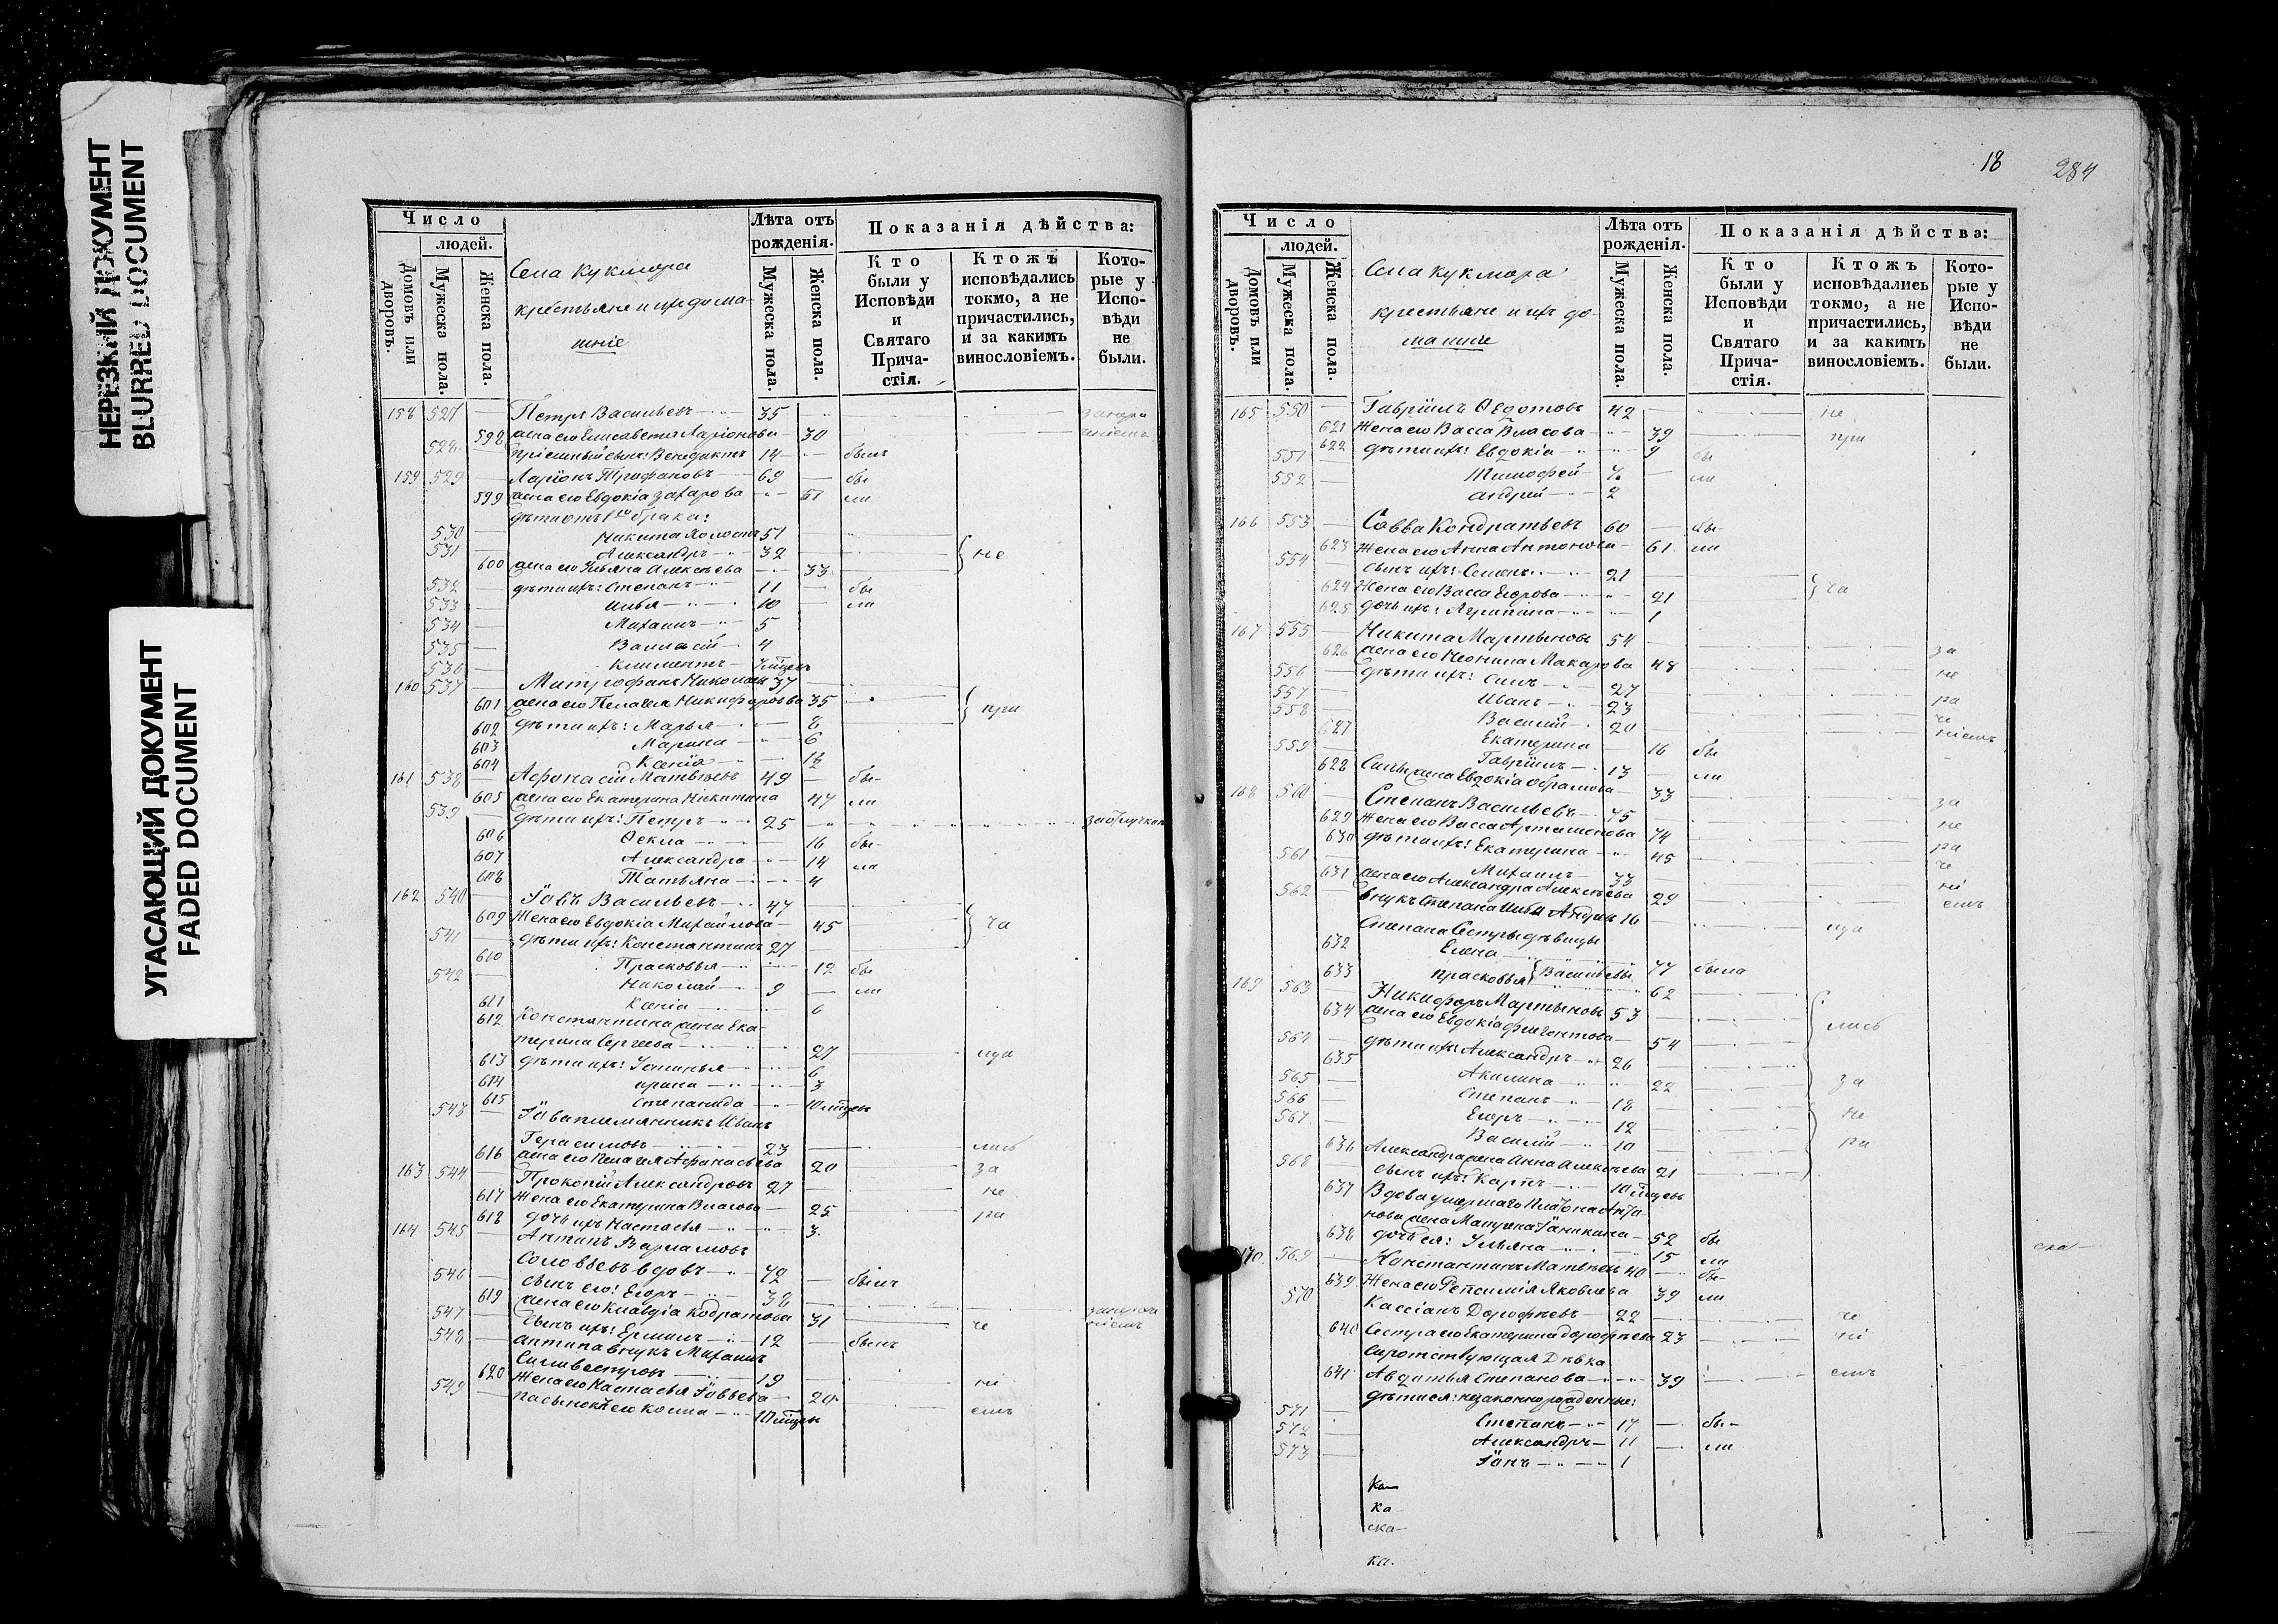 НЕРЕЗКИЙ ДОКУМЕНТ
BLURRED DOCUMENT
УГАСАЮЩИЙ ДОКУМЕНТ
FADED DOCUMENT
Число
людей.
Домовъ или дворовъ.
Мужеска пола.
Женска пола.
Села Кукмора
крестьяне и ихъ дома-
шніе
Лѣта отъ рожденія.
Мужеска пола.
Женска пола.
Показанія дѣйства:
Кто были у Исповѣди и Святаго Прича-стія.
Ктожъ исповѣдались токмо, а не причастились, и за какимъ винословіемъ.
Кото-рые у Испо-вѣди не были.
158 527 Петръ Васильевъ 35
598 жена его Елисавета Ларіонова 30
528 пріемный сынъ: Венедиктъ 14 былъ
159 529 Ларіонъ Трофановъ 69 бы
599 жена его Евдокія Захарова 51 ли
дѣти отъ 1го брака:
530 Никита холостъ 51
531 Александръ 32 не
600 жена его Ульяна Алексѣева 33
532 дѣти ихъ: Степанъ 11 бы
533 Илья 10 ли
534 Михаилъ 5
535 Василій 4
536 Климентъ
160 537 Митрофанъ Николаевъ 37
601 жена его Пелагея Никифорова 35 при
602 дѣти ихъ: Марья 8
603 Марина 6
604 Ксенія
161 538 Афонасій Матвѣевъ 49 бы-
605 жена его Екатерина Никитина 47 ли
539 дѣти ихъ: Петръ 25
606 Ѳекла 16 бы-
607 Александра 14 ли
608 Татьяна 4
162 540 Іовъ Васильевъ 47
609 Жена его Евдокія Михайлова 45 ча
541 дѣти ихъ: Константинъ 27
610 Прасковья 12 бы
542 Николай 9 ли
611 Ксенія 6
612 Константина жена Ека-
терина Сергеева 27
613 дѣти ихъ: Устинья 6
614 Ирина 3
615 Степанида
543 Іова племянникъ Иванъ
Герасимовъ 23 лись
616 жена его Пелагея Афонасьева 20 за
163 544 Прокопій Александровъ 27 не
617 Жена его Екатерина Власова 25 ра
618 дочь ихъ Настасья 3
164 545 Антипъ Варламовъ
Соловьевъ вдовъ 72 былъ
546 сынъ его: Егоръ 38
619 жена его Клавдія Кодратова 31 че
547 сынъ ихъ: Ермилъ 12 былъ
548 Антипа внукъ Михаилъ
Силивестровъ 19 ні
620 Жена его Настасья Іовьева 20 емъ
549 пасынокъ его Косма
18
284
Число
людей.
Домовъ или дворовъ.
Мужеска пола.
Женска пола.
Села Кукмора
крестьяне и ихъ до-
машніе
Лѣта отъ рожденія.
Мужеска пола.
Женска пола.
Показанія дѣйства:
Кто были у Исповѣди и Святаго Прича-стія.
Ктожъ исповѣдались токмо, а не причастились, и за какимъ винословіемъ.
Кото-рые у Испо-вѣди не были.
165 550 Гавріилъ Ѳедотовъ 42 не
621 Жена его Васса Власова 39 при
622 дѣти ихъ: Евдокія 9 бы
551 Тимофей ли
552 Андрей 2
166 553 Савва Кондратьевъ 60 бы-
623 Жена его Анна Антонова 61 ли
554 сынъ ихъ: Семенъ 21
624 Жена его Васса Егорова 21 ча
625 дочь ихъ: Агрипина 1
167 555 Никита Мартыновъ 54 за
626 жена его Неонила Макарова 48 не
556 дѣти ихъ: Силъ 27 ра
557 Иванъ 23 че
558 Василій 20 ніемъ
627 Екатерина 16 бы
559 Гавріилъ 13 ли
628 Силы жена Евдокія Абрамова 33
168 560 Степанъ Васильевъ 75 за
629 Жена его Васса Артамонова 74 не
630 дѣти ихъ: Екатерина 45 ра
561 Михаилъ 33 че
631 жена его Александра Алексѣева 29 ні
562 внукъ Степана Андрей 16 емъ
Степана сестры дѣвицы
632 Елена 77 была
633 Прасковья Васильевы 62
169 563 Никифоръ Мартыновъ 53
634 жена его Евдокія 54 лись
564 дѣти ихъ Александръ 26
635 Акилина 22 за
565 Степанъ 18
566 Егоръ 12 не
567 Василій 10 ра
636 Александра жена Анна Алексѣева 21
568 сынъ ихъ: Карпъ
637 Вдова умершаго Платона Анто-
нова жена Матрена 52 бы
638 дочь ея: Ульяна 15 ли
170 569 Константинъ Матвѣевъ 40 бы-
639 Жена его Репсимія Яковлева 39 ли
570 Кассіанъ Дорофѣевъ 22 че
640 Сестра его Екатерина Дорофѣева 23 ні
Сиротствующая Дѣвка
641 Авдотья Степанова 39 емъ
дѣти ея: незаконнорожденные:
571 Степанъ 17 бы-
572 Александръ 11 ли
573 Іонъ 1
ка-
ка-
ска-
ка.
ска-